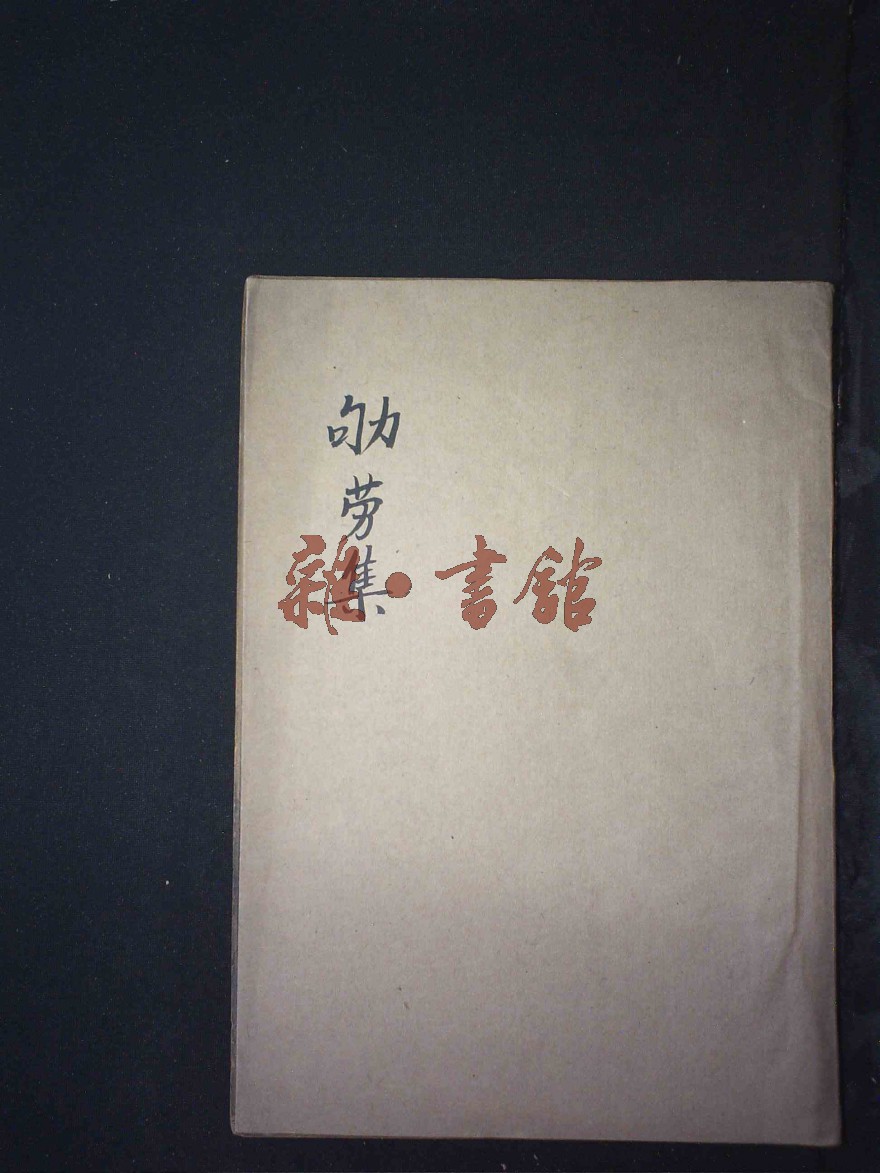 劬
劳
集
雜·書舘